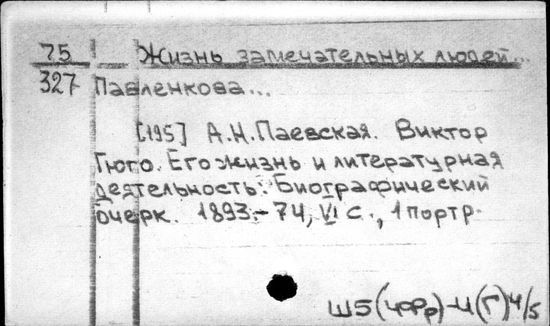 75 Жизнь замечательных людей...
327 Павленкова...
[195] А.Н.Паевская. Виктор
Гюго. Его жизнь и литературная
деятельность. Биографический
очерк. 1893.- 74, VI с., 1 портр.
Ш5(4Фр)-4(Г)4/5